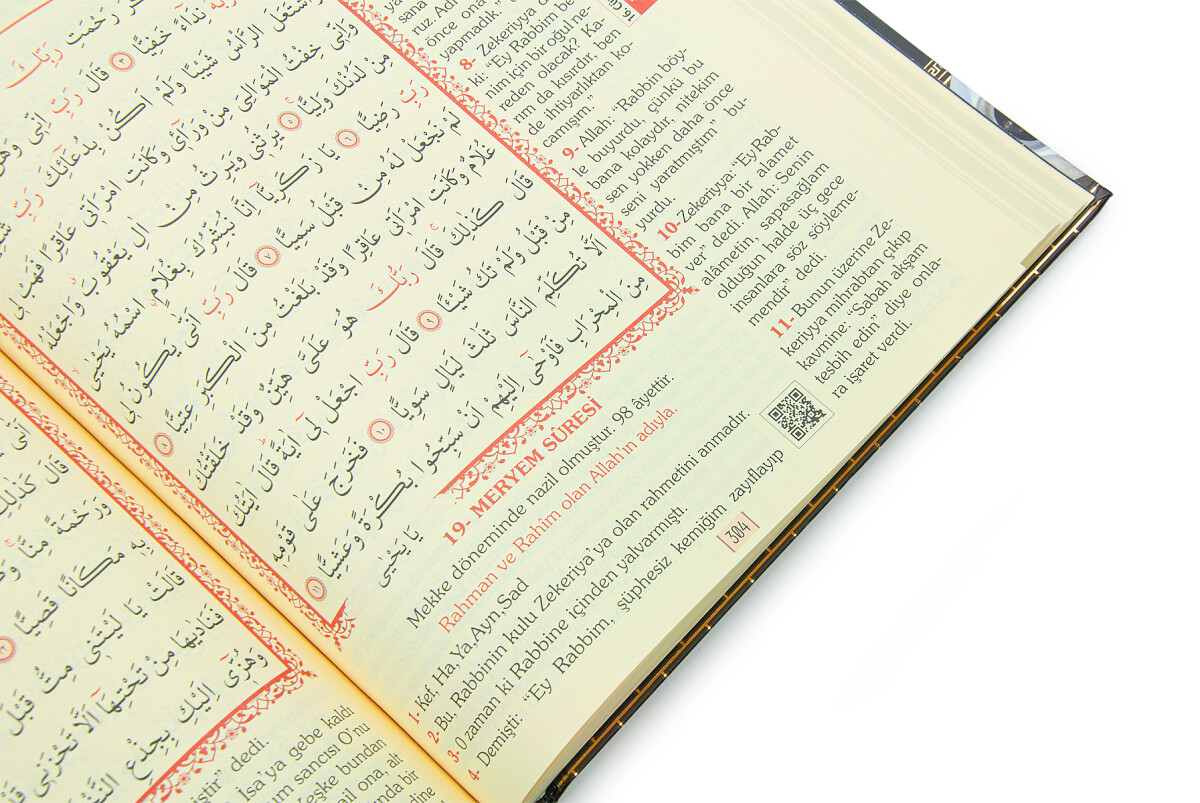 رَبِّكَ
نِدَٓاءً خَفِيًّا ﴿٣﴾ قَالَ رَبِّ اِنّٖي وَهَنَ
وَاشْتَعَلَ الرَّأْسُ شَيْبًا وَلَمْ اَكُنْ بِدُعَٓائِكَ رَبِّ
وَاِنّٖي خِفْتُ الْمَوَالِيَ مِنْ وَرَٓائٖي وَكَانَتِ امْرَاَتٖي عَاقِرًا فَهَبْ لٖي
مِنْ لَدُنْكَ وَلِيًّا ﴿٥﴾ يَرِثُنٖي وَيَرِثُ مِنْ اٰلِ يَعْقُوبَ وَاجْعَلْهُ
رَبِّ رَضِيًّا ﴿٦﴾ يَا زَكَرِيَّٓا اِنَّا نُبَشِّرُكَ بِغُلَامٍ اسْمُهُ يَحْيٰى
لَمْ نَجْعَلْ لَهُ مِنْ قَبْلُ سَمِيًّا ﴿٧﴾ قَالَ رَبِّ اَنّٰى يَكُونُ لٖي
غُلَامٌ وَكَانَتِ امْرَاَتٖي عَاقِرًا وَقَدْ بَلَغْتُ مِنَ الْكِبَرِ عِتِيًّا ﴿٨﴾
قَالَ كَذٰلِكَ قَالَ رَبُّكَ هُوَ عَلَيَّ هَيِّنٌ وَقَدْ خَلَقْتُكَ
مِنْ قَبْلُ وَلَمْ تَكُ شَيْـًٔا ﴿٩﴾ قَالَ رَبِّ اجْعَلْ لٖٓي اٰيَةً قَالَ اٰيَتُكَ
اَلَّا تُكَلِّمَ النَّاسَ ثَلٰثَ لَيَالٍ سَوِيًّا ﴿١٠﴾ فَخَرَجَ عَلٰى قَوْمِهٖ
مِنَ الْمِحْرَابِ فَاَوْحٰٓى اِلَيْهِمْ اَنْ سَبِّحُوا بُكْرَةً وَعَشِيًّا ﴿١١﴾
يَا يَحْيٰى
yapmadık."
8- Zekeriyya
ki: "Ey Rabbim be-
nim için bir oğul ne-
reden olacak? Ka-
rım da kısırdır, ben
de ihtiyarlıktan ko-
camışım."
9- Allah: "Rabbin böy-
le buyurdu, çünkü bu
bana kolaydır, nitekim
sen yokken daha önce
seni yaratmıştım" bu-
yurdu.
10- Zekeriyya: "EyRab-
bim bana bir alamet
ver" dedi. Allah: Senin
alâmetin, sapasağlam
olduğun halde üç gece
insanlara söz söyleme-
mendir" dedi.
11- Bunun üzerine Ze-
keriyya mihrabtan çıkıp
kavmine: "Sabah akşam
tesbih edin" diye onla-
ra işaret verdi.
19- MERYEM SÛRESİ
Mekke döneminde nazil olmuştur. 98 âyettir.
Rahman ve Rahîm olan Allah'ın adıyla.
1- Kef, Ha,Ya,Ayn,Sad
2- Bu, Rabbinin kulu Zekeriya'ya olan rahmetini anmadır.
3- O zaman ki Rabbine içinden yalvarmıştı.
4- Demişti: "Ey Rabbim, şüphesiz kemiğim zayıflayıp
304
قَالَ كَذٰلِكِ
وَرَحْمَةً مِنَّا
بِهٖ مَكَانًا قَصِيًّا
قَالَتْ يَا لَيْتَنٖي مِتُّ قَبْلَ
فَنَادٰيهَا مِنْ تَحْتِهَٓا اَلَّا تَحْزَنٖي
وَهُزّٖٓي اِلَيْكِ بِجِذْعِ
dedi.
İsa'ya gebe kaldı
sancısı O'nu
Keşke bundan
ona, alt
bir